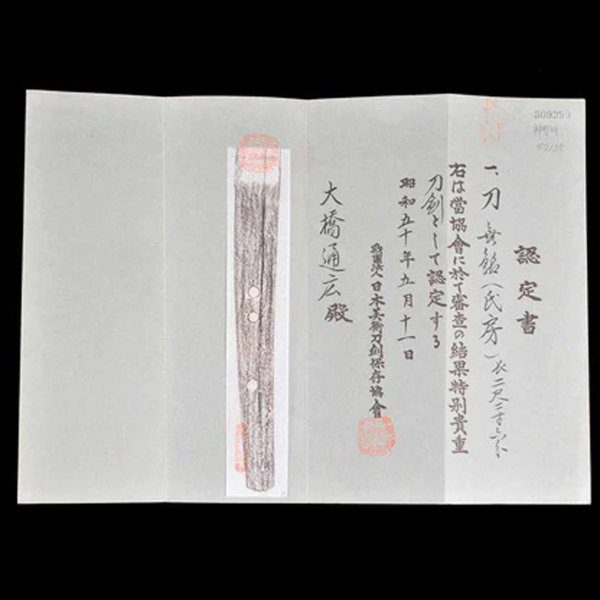 認定書
一、刀 無銘(氏房)長二尺二寸六分
右は當協會に於て審査の結果特別貴重
刀剣として認定する
昭和五十年五月十一日
財團法人日本美術刀剣保存協會
大橋通広殿
309293